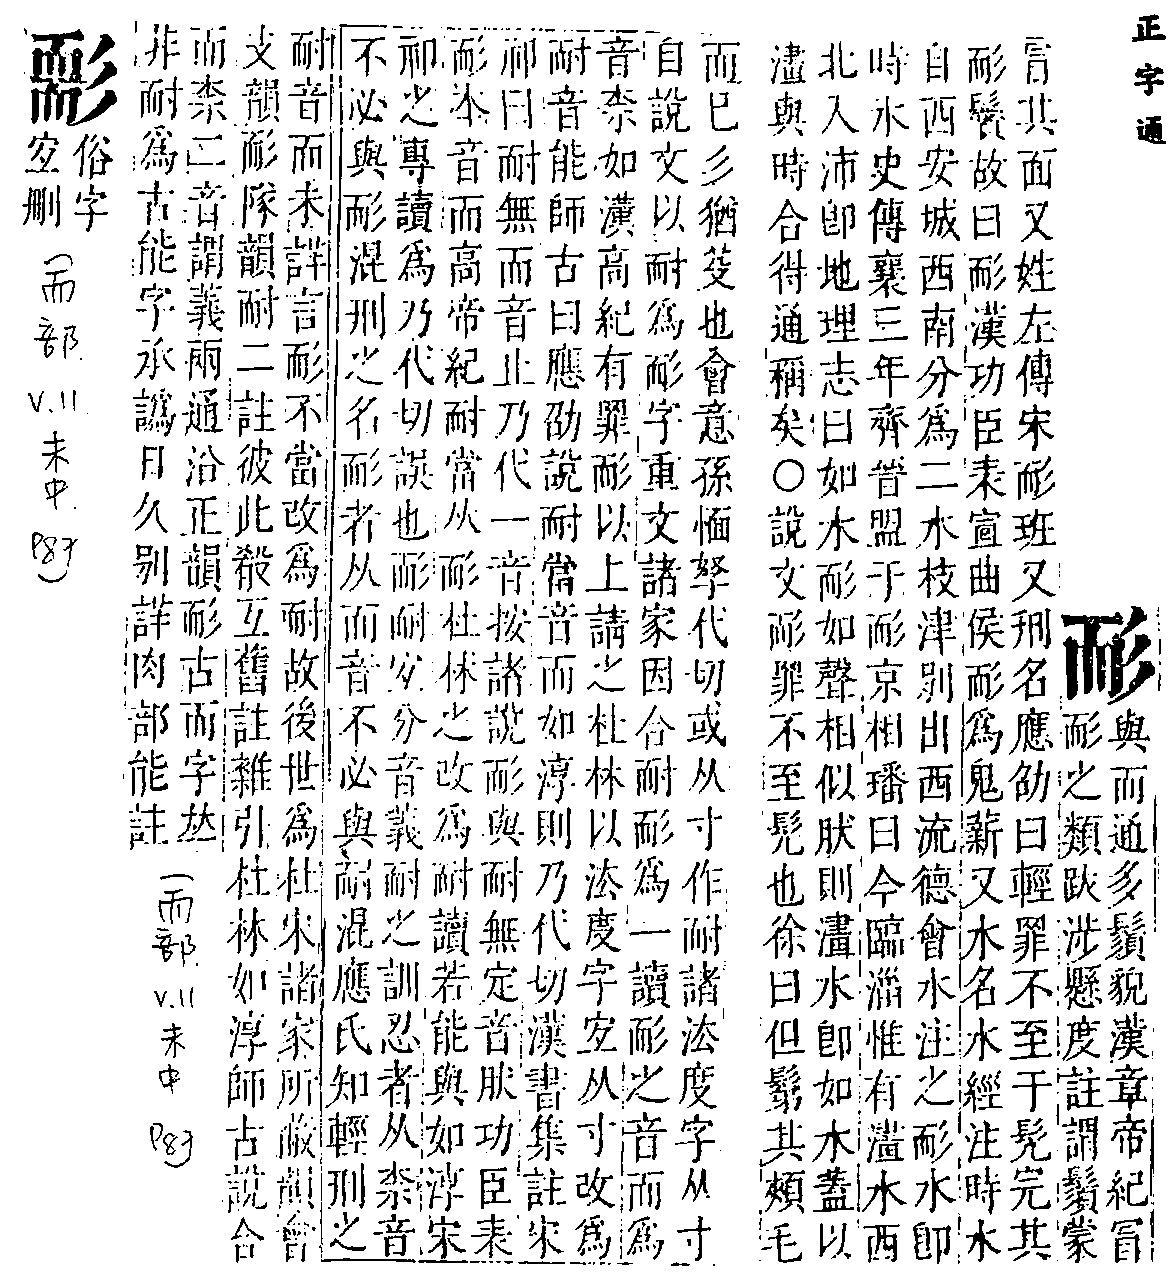 正字通
耏
與而通多鬚貌漢章帝紀冐
耏之類跋涉懸度註謂鬚蒙
冐其面又姓左傳宋耏班又刑名應劭曰輕罪不至于髡完其
耏鬢故曰耏漢功臣表宣曲侯耏為鬼薪又水名水經注時水
自西安城西南分為二水枝津別出西流德會水注之耏水即
時水史傳襄三年齊晉盟于耏京相璠曰今臨淄惟有澅水西
北入沛即地理志曰如水耏如聲相似肰則澅水即如水蓋以
澅與時合得通稱矣○說文耏罪不至髡也徐曰但鬀其頰毛
而已彡猶芟也會意孫愐拏代切或从寸作耐諸法度字从寸
自說文以耐為耏字重文諸家因合耐耏為一讀耏之音而為
音柰如漢高紀有罪耏以上請之杜林以法度字宐从寸改為
耐音能師古曰應劭說耐當音而如淳則乃代切漢書集註宋
祁曰耐無而音止乃代一音按諸說耏與耐無定音肰功臣表
耏本音而高帝紀耐當从耏杜林之改為耐讀若能與如淳宋
祁之專讀為乃代切誤也耏耐宐分音義耐之訓忍者从柰音
不必與耏混刑之名耏者从而音不必與耐混應氏知輕刑之
耐音而未詳言耏不當改為耐故後世為杜宋諸家所蔽韻會
支韻耏隊韻耐二註彼此殽互舊註雜引杜林如淳師古說合
而柰二音謂義兩通沿正韻耏古而字𠀤
非耐為古能字承譌日久別詳肉部能註
(而部 v.11 未中 p83)
俗字
宐刪
(而部 v.11 未中 p83)